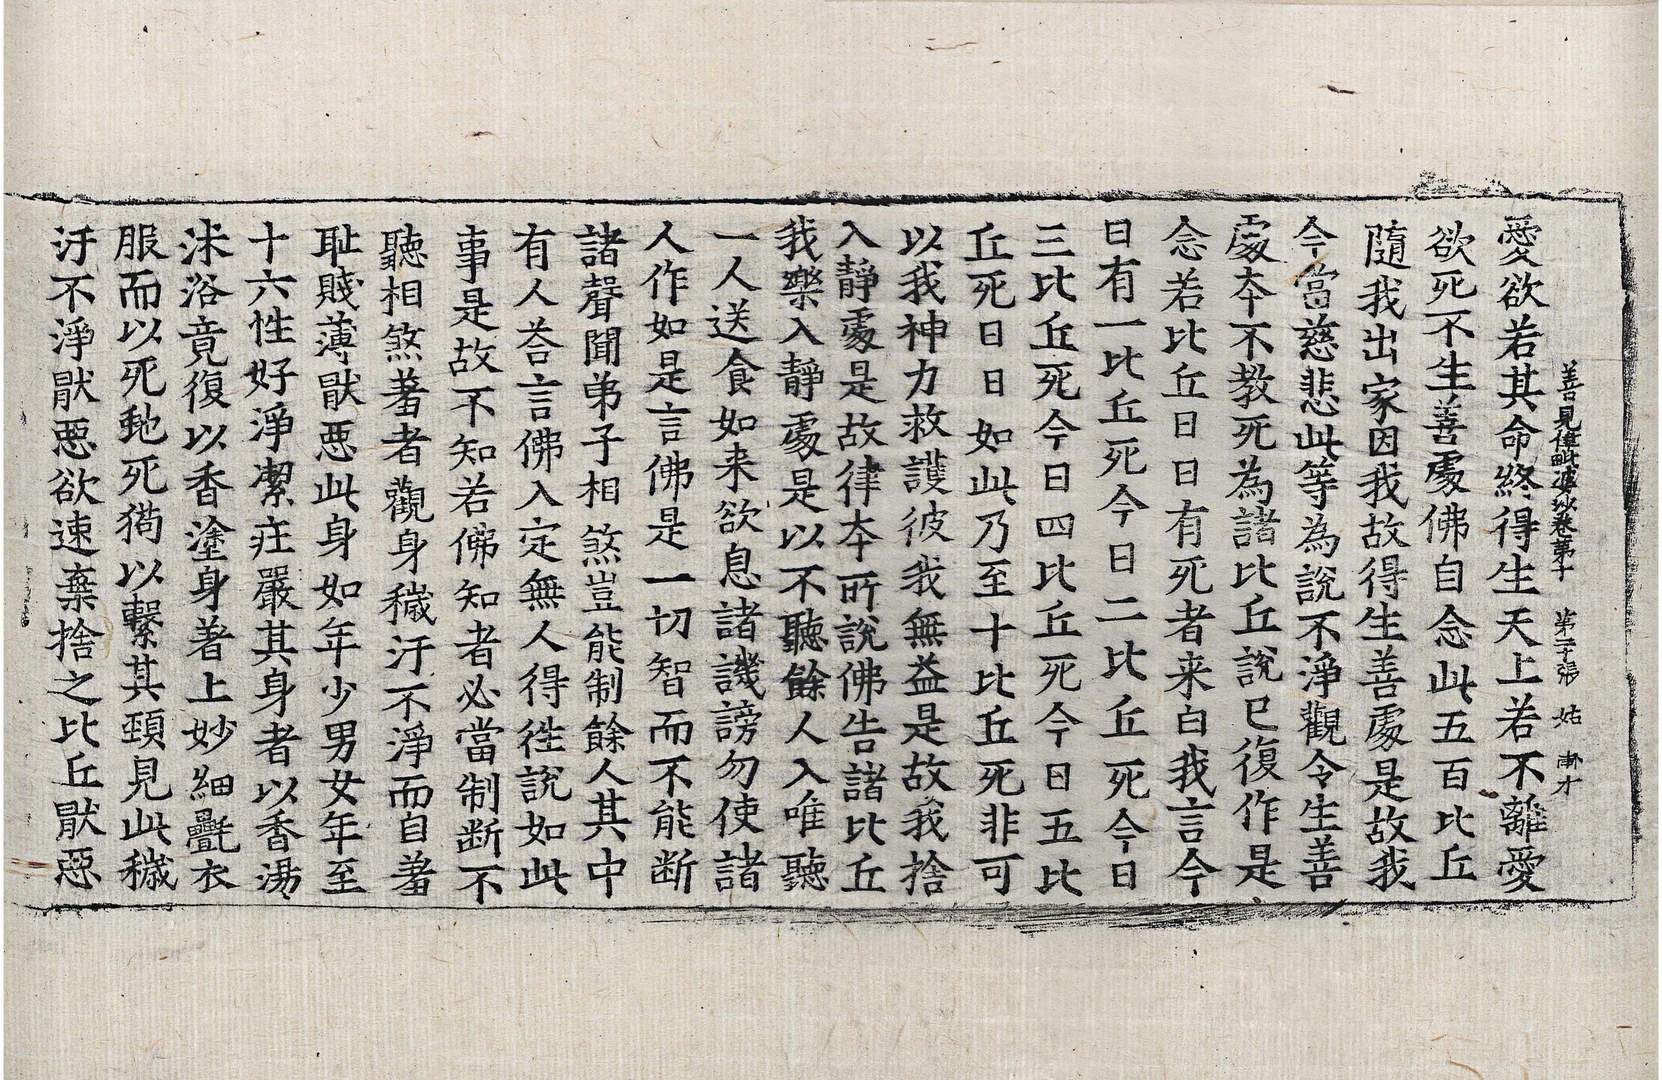 善見律毗婆沙卷第十 第二十張 姑
愛欲若其命終得生天上若不離愛
欲死不生善處佛自念此五百比丘
隨我出家因我故得生善處是故我
今當慈悲此等為說不淨觀令生善
處本不教死為諸比丘說已復作是
念若比丘日日有死者来白我言今
日有一比丘死今日二比丘死今日
三比丘死今日四比丘死今日五比
丘死日日如此乃至十比丘死非可
以我神力救護彼我無益是故我捨
入靜處是故律本所說佛告諸比丘
我樂入靜處是以不聽餘人入唯聽
一人送食如来欲息諸譏謗勿使諸
人作如是言佛是一切智而不能断
諸聲聞弟子相煞豈能制餘人其中
有人荅言佛入定無人得往說如此
事是故不知若佛知者必當制断不
聽相煞著者觀身穢汙不淨而自著
耻賤薄猒惡此身如年少男女年至
十六性好淨潔莊嚴其身者以香湯
沐浴竟復以香塗身著上妙細疊衣
服而以死虵死狗以繫其頸見此穢
汙不淨猒惡欲速棄捨之比丘猒惡